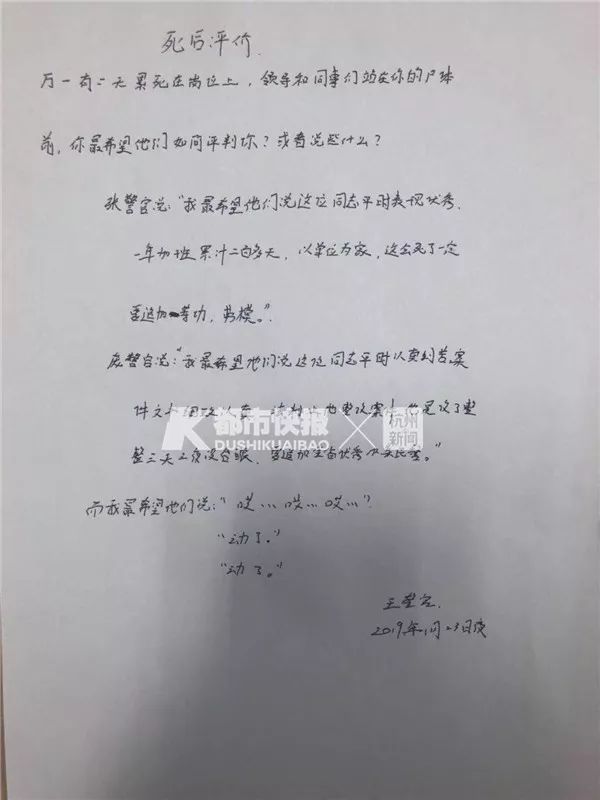 死后评价
万一有一天累死在岗位上，领导和同事们站在你的尸体
前，你最希望他们如何评判你？或者说些什么？
张警官说："我最希望他们说这位同志平时表现优秀，
一年加班累计二百多天，以单位为家，这会死了一定
要追加一等功，劳模。"
庞警官说："我最希望他们说这位同志平时以真刑苦案
件
K都市快报
DUSHIKUAIBAO
杭州
新闻
整三天三夜没合眼，要追加全省优秀人民警。"
而我最希望他们说："哎…哎…哎…"
"动了。"
"动了。"
王警官
2019年1月23日夜